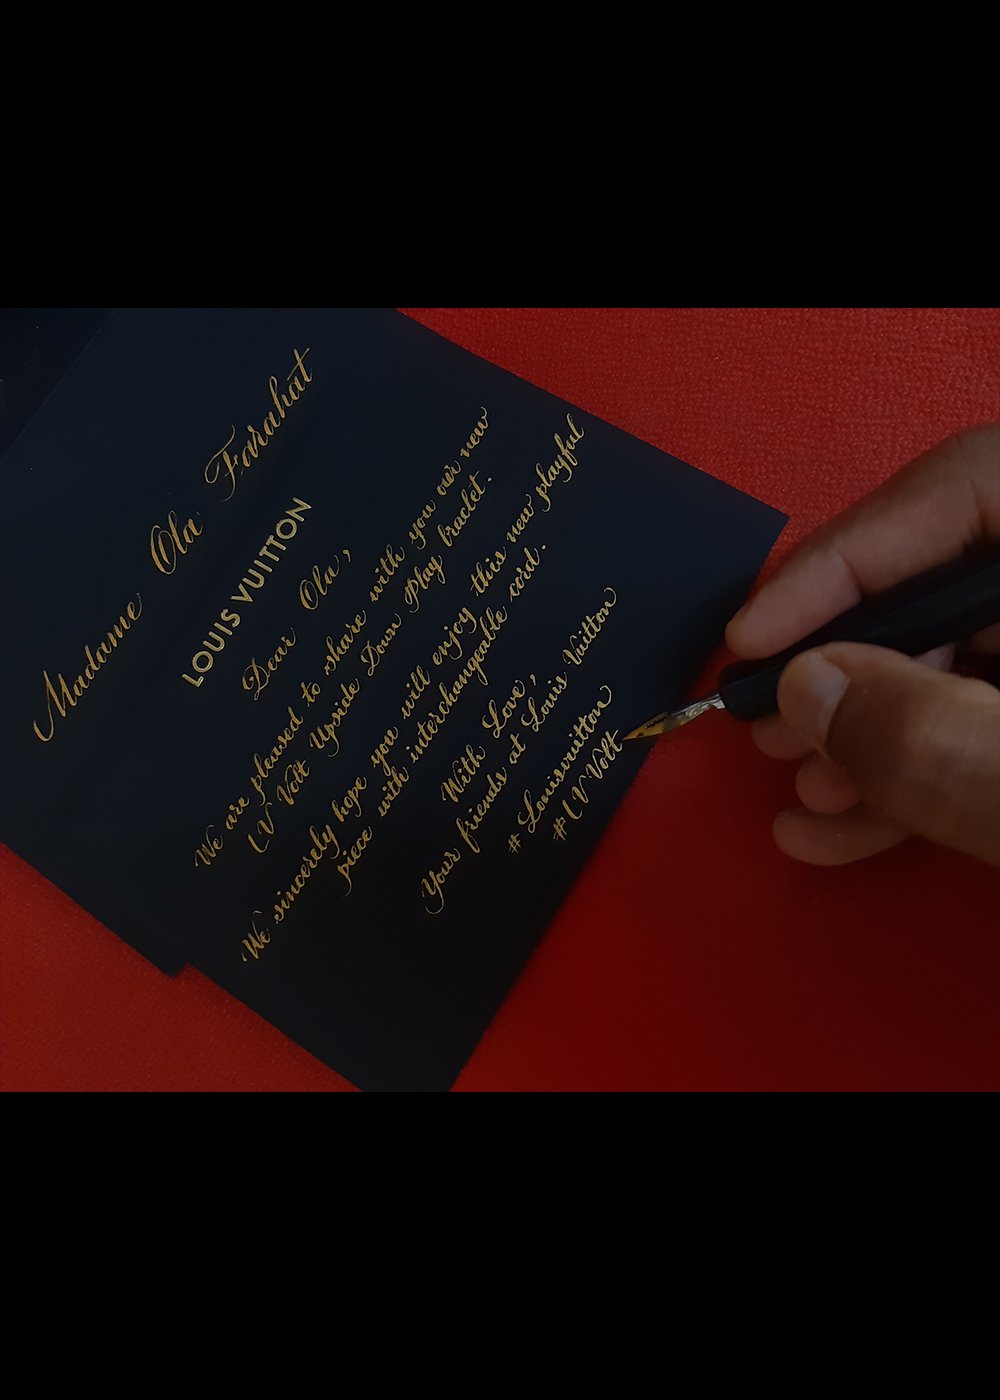 Madame Ola Farahat
LOUIS VUITTON
Dear Ola,
We are pleased to share with you our new
LV Volt Upside Down Play braclet.
We sincerely hope you will enjoy this new playful
piece with interchangeable cord.
With Love,
Your friends at Louis Vuitton
# Louisvuitton
#LV Volt